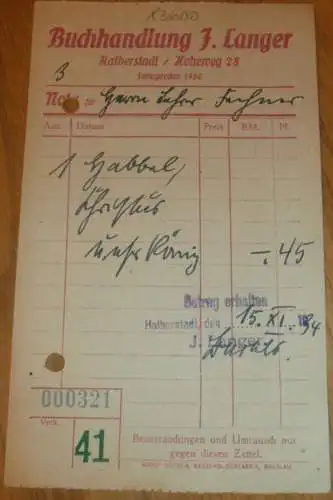 Buchhandlung J. Langer
Halberstadt / Hoheweg 28
Fernsprecher 1960
B
Nota für Herrn Lehrer Fechner
Anz. Datum Preis RM. Pf.
1 Habbel,
Christus
unser König -.45
Betrag erhalten
Halberstadt, den 15. XI. 1934
J. Langer
000321
Verk.
41
Beanstandungen und Umtausch nur
gegen diesen Zettel.